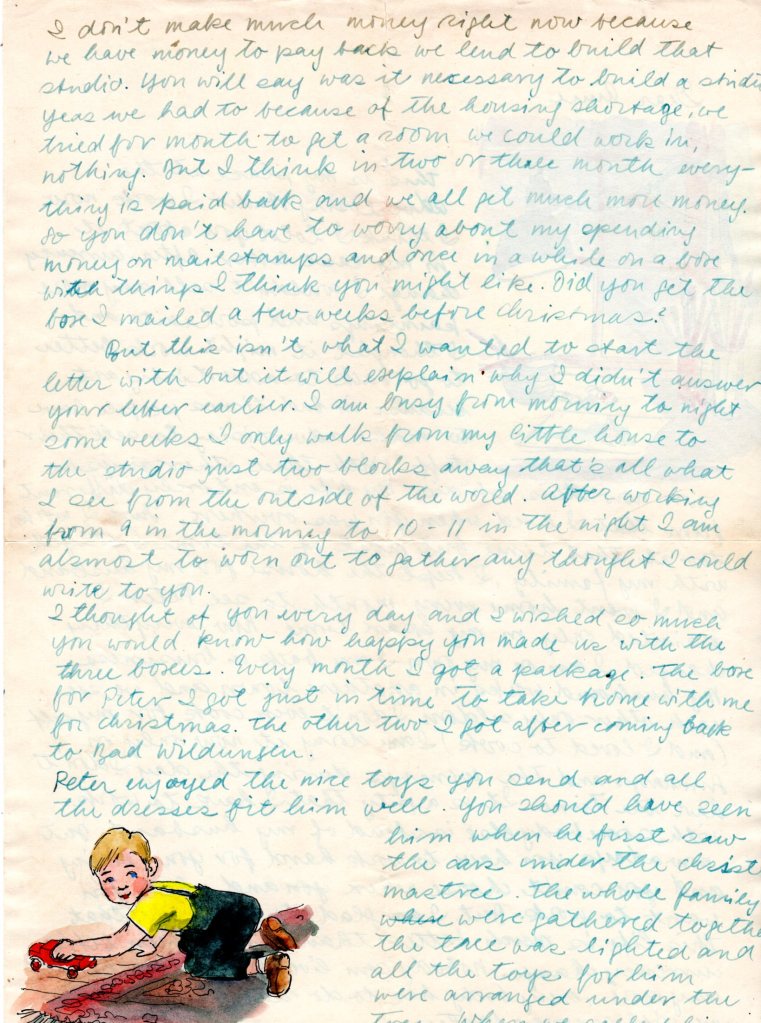 I don't make much money right now because
we have money to pay back we lend to build that
studio. You will say was it necessary to build a studio
yeas we had to because of the housing shortage, we
tried for month to get a room we could work in,
nothing. But I think in two or three month every-
thing is paid back and we all get much more money.
So you don't have to worry about my spending
money on mailstamps and once in a while on a boxe
with things I think you might like. Did you get the
boxe I mailed a few weeks before christmas?
But this isn't what I wanted to start the
letter with but it will explain why I didn't answer
your letter earlier. I am busy from morning to night
some weeks I only walk from my little house to
the studio just two blocks away that's all what
I see from the outside of the world. After working
from 9 in the morning to 10-11 in the night I am
alsmost to worn out to gather any thought I could
write to you.
I thought of you every day and I wished so much
you would know how happy you made us with the
three boxes. Every month I got a package. The boxe
for Peter I got just in time to take home with me
for christmas. The other two I got after coming back
to Bad Wildungen.
Peter enjoyed the nice toys you send and all
the dresses fit him well. You should have seen
him when he first saw
the cars under the christ
mastree. The whole family
when were gathered togethe
the tree was lighted and
all the toys for him
were arranged under the